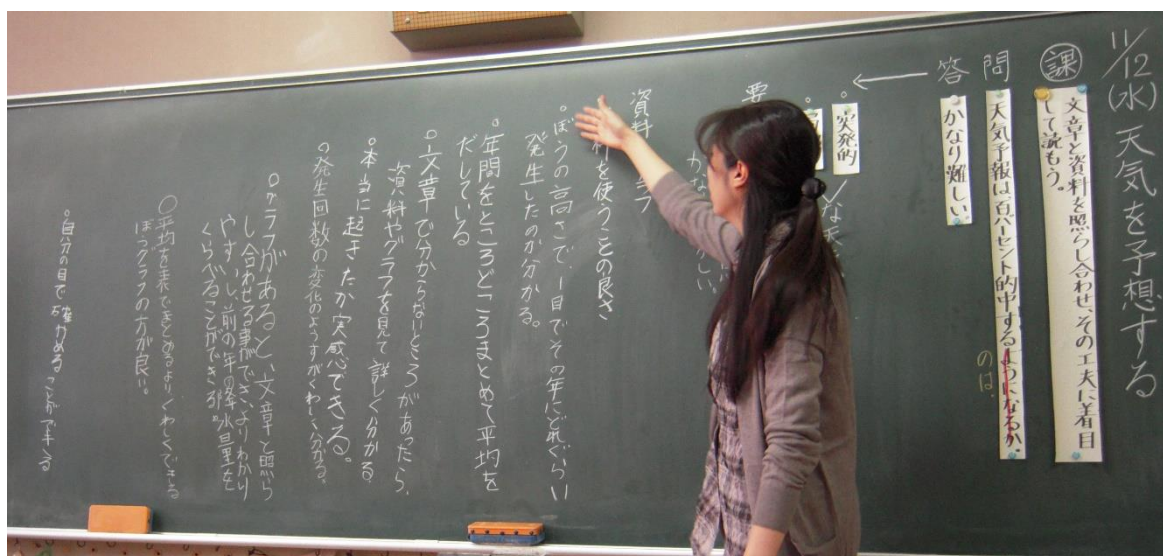 11/12(水)天気を予想する
課
文章と資料を照らし合わせ、その工夫に着目
して読もう。
問
天気予報は、百パーセント的中するようになるか。
のは
答
かなり難しい。
突発的
要
資料
を使うことの良さ
・ぼうの高さで、一目でその年にどれぐらい
発生したのか分かる。
・年間をところどころまとめて平均を
だしている
○文章で分からないところがあったら、
資料やグラフを見て詳しく分かる。
・本当に起きたか実感できる。
○発生回数の変化のようすがくわしく分かる。
○グラフがあると、文章と照ら
し合わせる事ができ、よりわかり
やすいし、前の年の降水量を
くらべることができる。
○平均を表でまとめるよりくわしくできる
ぼうグラフの方が良い。
・自分の目で確かめることができる